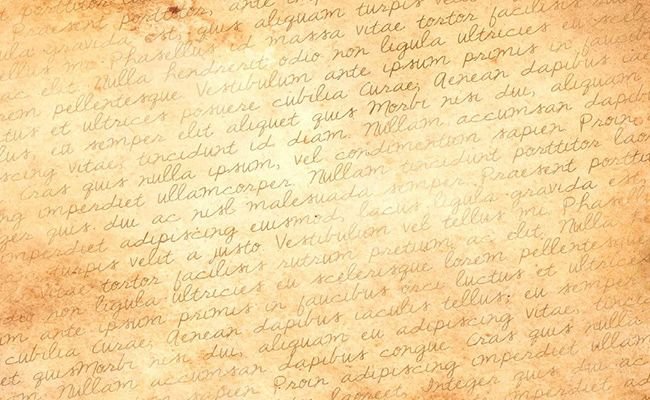 porttitor
Praesent porttitor, ante
gravida est, quis aliquam turpis
mi. Phasellus id massa vitae tortor facilisis
ac elit. Nulla hendrerit odio non ligula ultricies eu
pellentesque Vestibulum ante ipsum primis in faucibus
et ultrices posuere cubilia Curae; Aenean dapibus
eu semper elit aliquet quis Morbi nisi dui, aliquam
vitae, tincidunt id diam. Nullam accumsan dapibus
Cras quis nulla ipsum, vel condimentum sapien Proin
imperdiet ullamcorper. Nullam tincidunt porttitor
quis dui ac nisl malesuada semper. Praesent
imperdiet adipiscing euismod, lacus ligula gravida est,
turpis velit a justo Vestibulum vel tellus mi. Phasellus
vitae tortor facilisis rutrum pretium ac elit. Nulla
non ligula ultricies eu scelerisque lorem pellentesque
ante ipsum primis in faucibus orci luctus et ultrices
cubilia Curae; Aenean dapibus iaculis tellus, eu semper
et quisMorbi nisi dui, aliquam eu adipiscing vitae,
Nullam accumsan dapibus congue Cras quis nulla
sapien Proin adipiscing imperdiet
laoreet, Integer quis dui ac